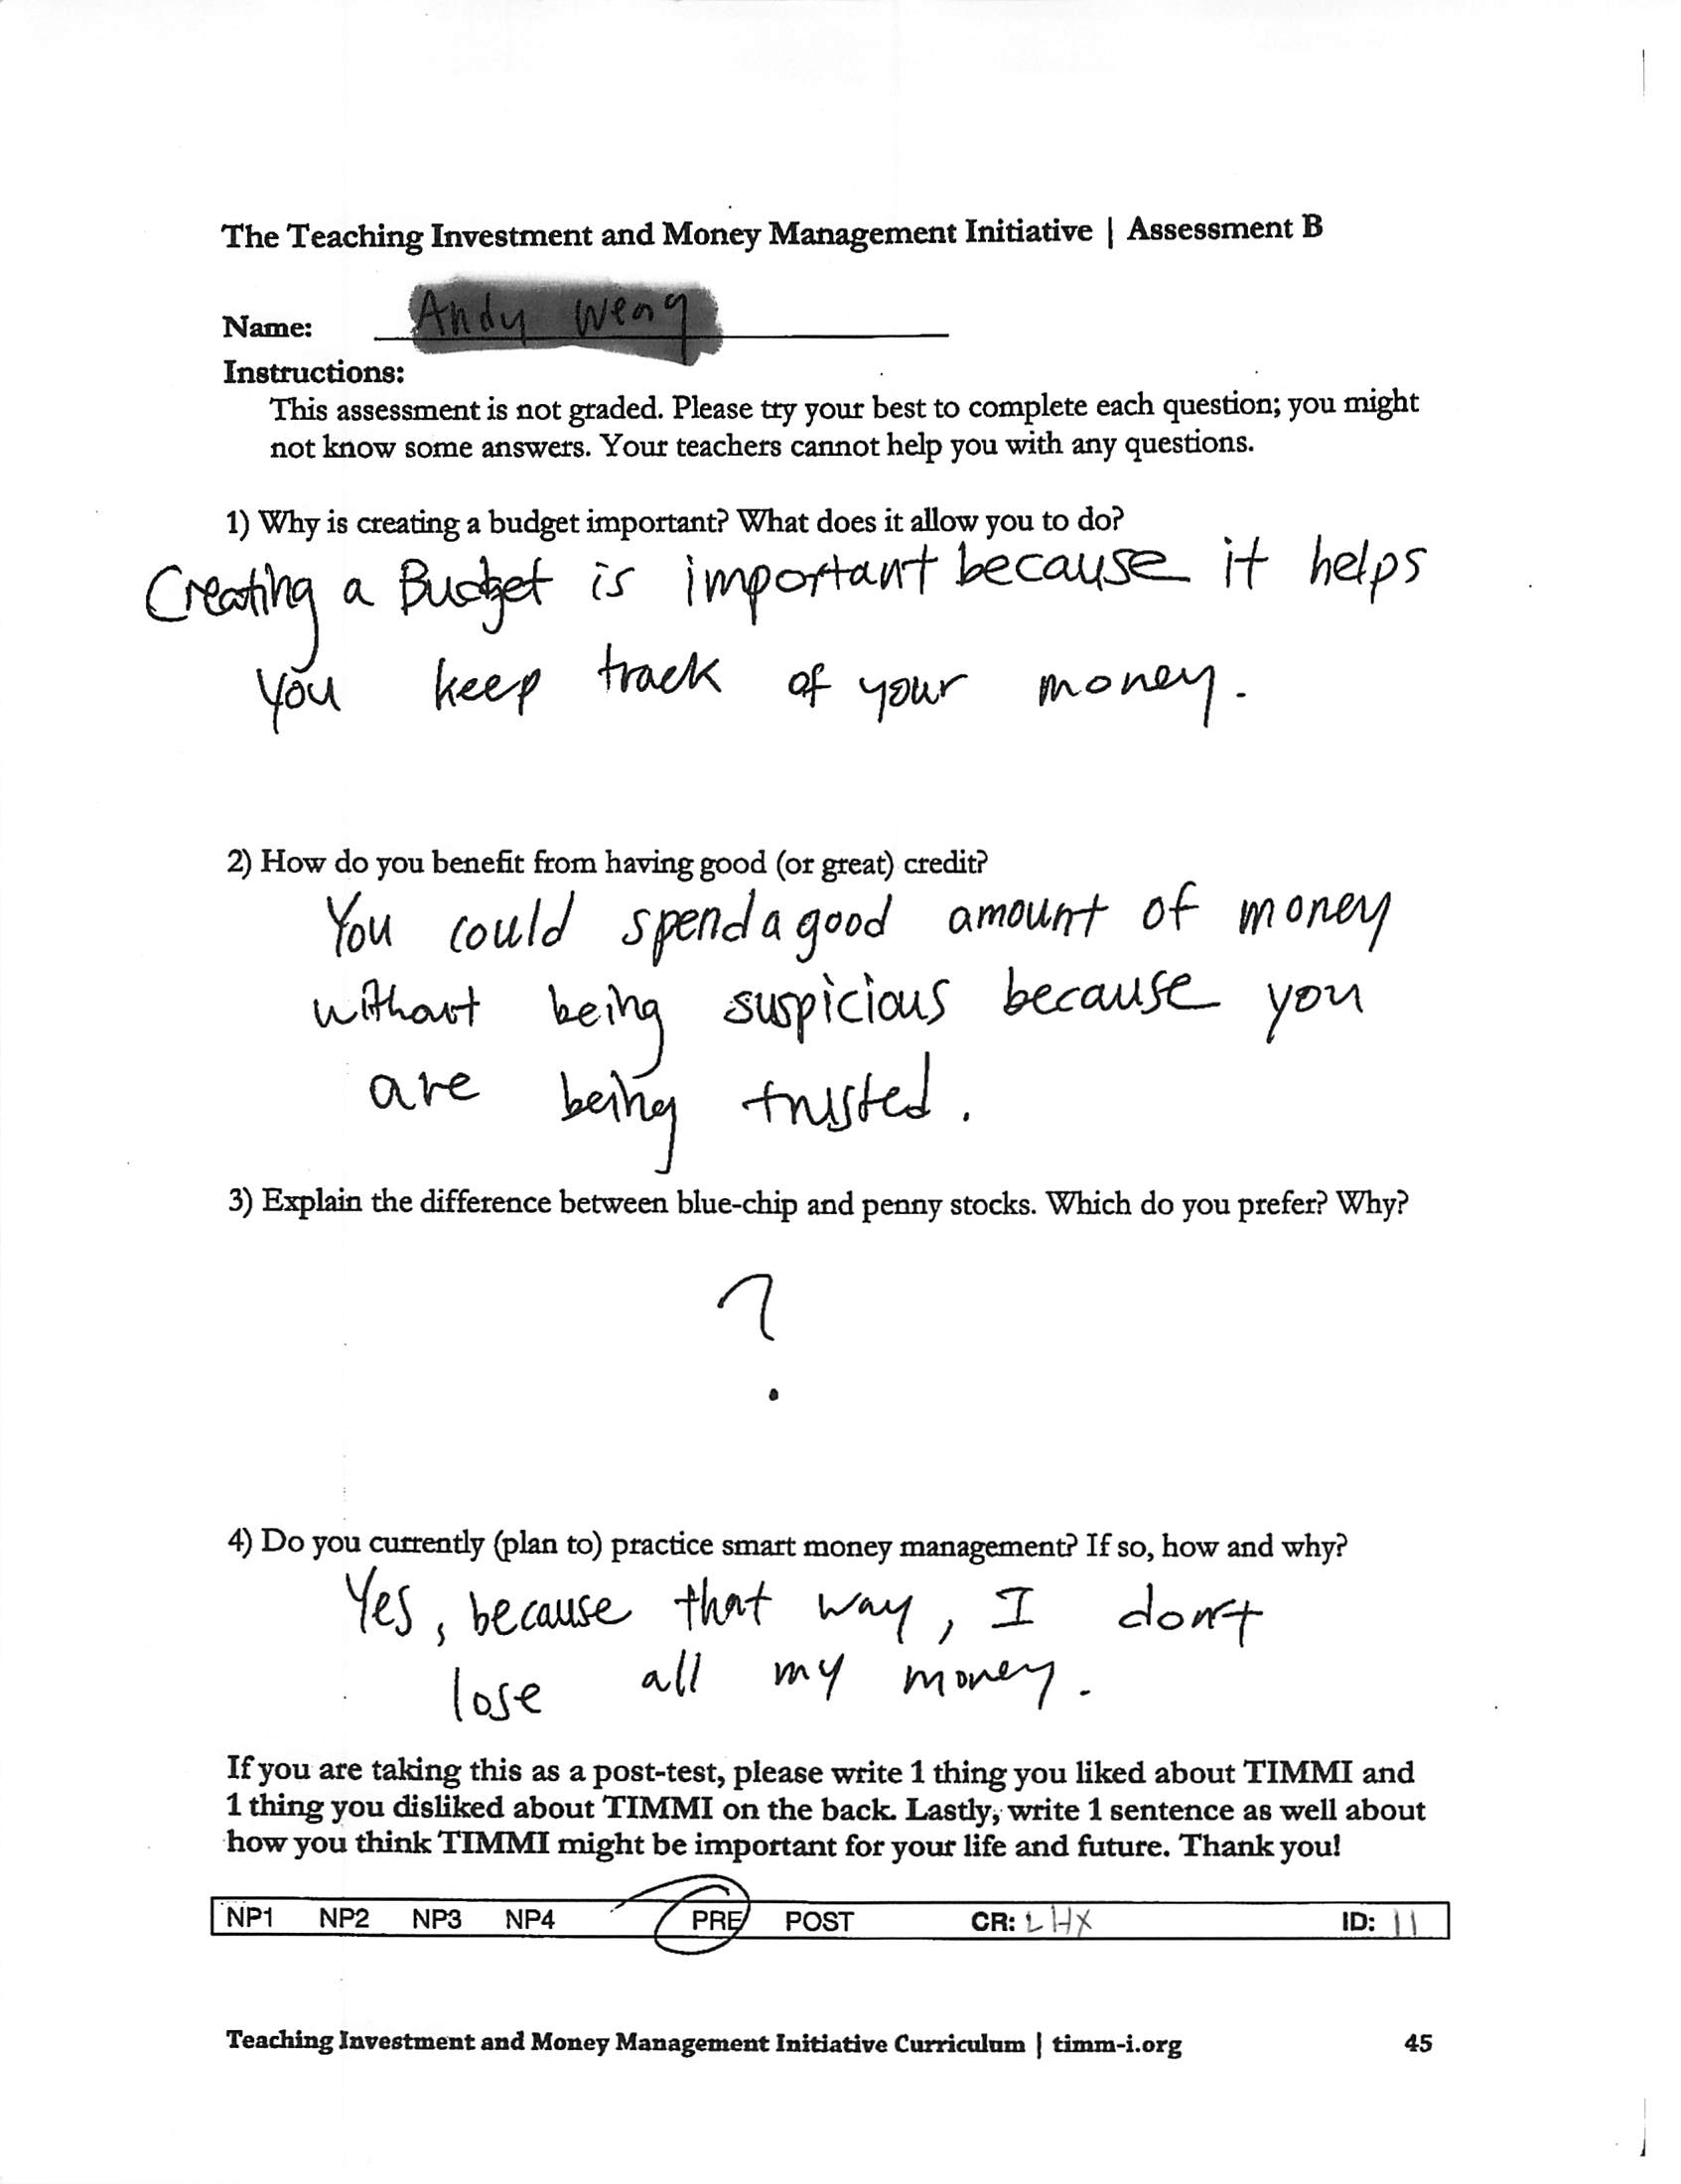 The Teaching Investment and Money Management Initiative | Assessment B
Name: Andy Weng
Instructions:
This assessment is not graded. Please try your best to complete each question; you might
not know some answers. Your teachers cannot help you with any questions.
1) Why is creating a budget important? What does it allow you to do?
Creating a Budget is important because it helps
you keep track of your money.
2) How do you benefit from having good (or great) credit?
You could spend a good amount of money
without being suspicious because you
are being trusted.
3) Explain the difference between blue-chip and penny stocks. Which do you prefer? Why?
?
4) Do you currently (plan to) practice smart money management? If so, how and why?
Yes, because that way, I don't
lose all my money.
If you are taking this as a post-test, please write 1 thing you liked about TIMMI and
1 thing you disliked about TIMMI on the back. Lastly, write 1 sentence as well about
how you think TIMMI might be important for your life and future. Thank you!
NP1 NP2 NP3 NP4 PRE POST CR: LHX ID: 11
Teaching Investment and Money Management Initiative Curriculum | timm-i.org 45